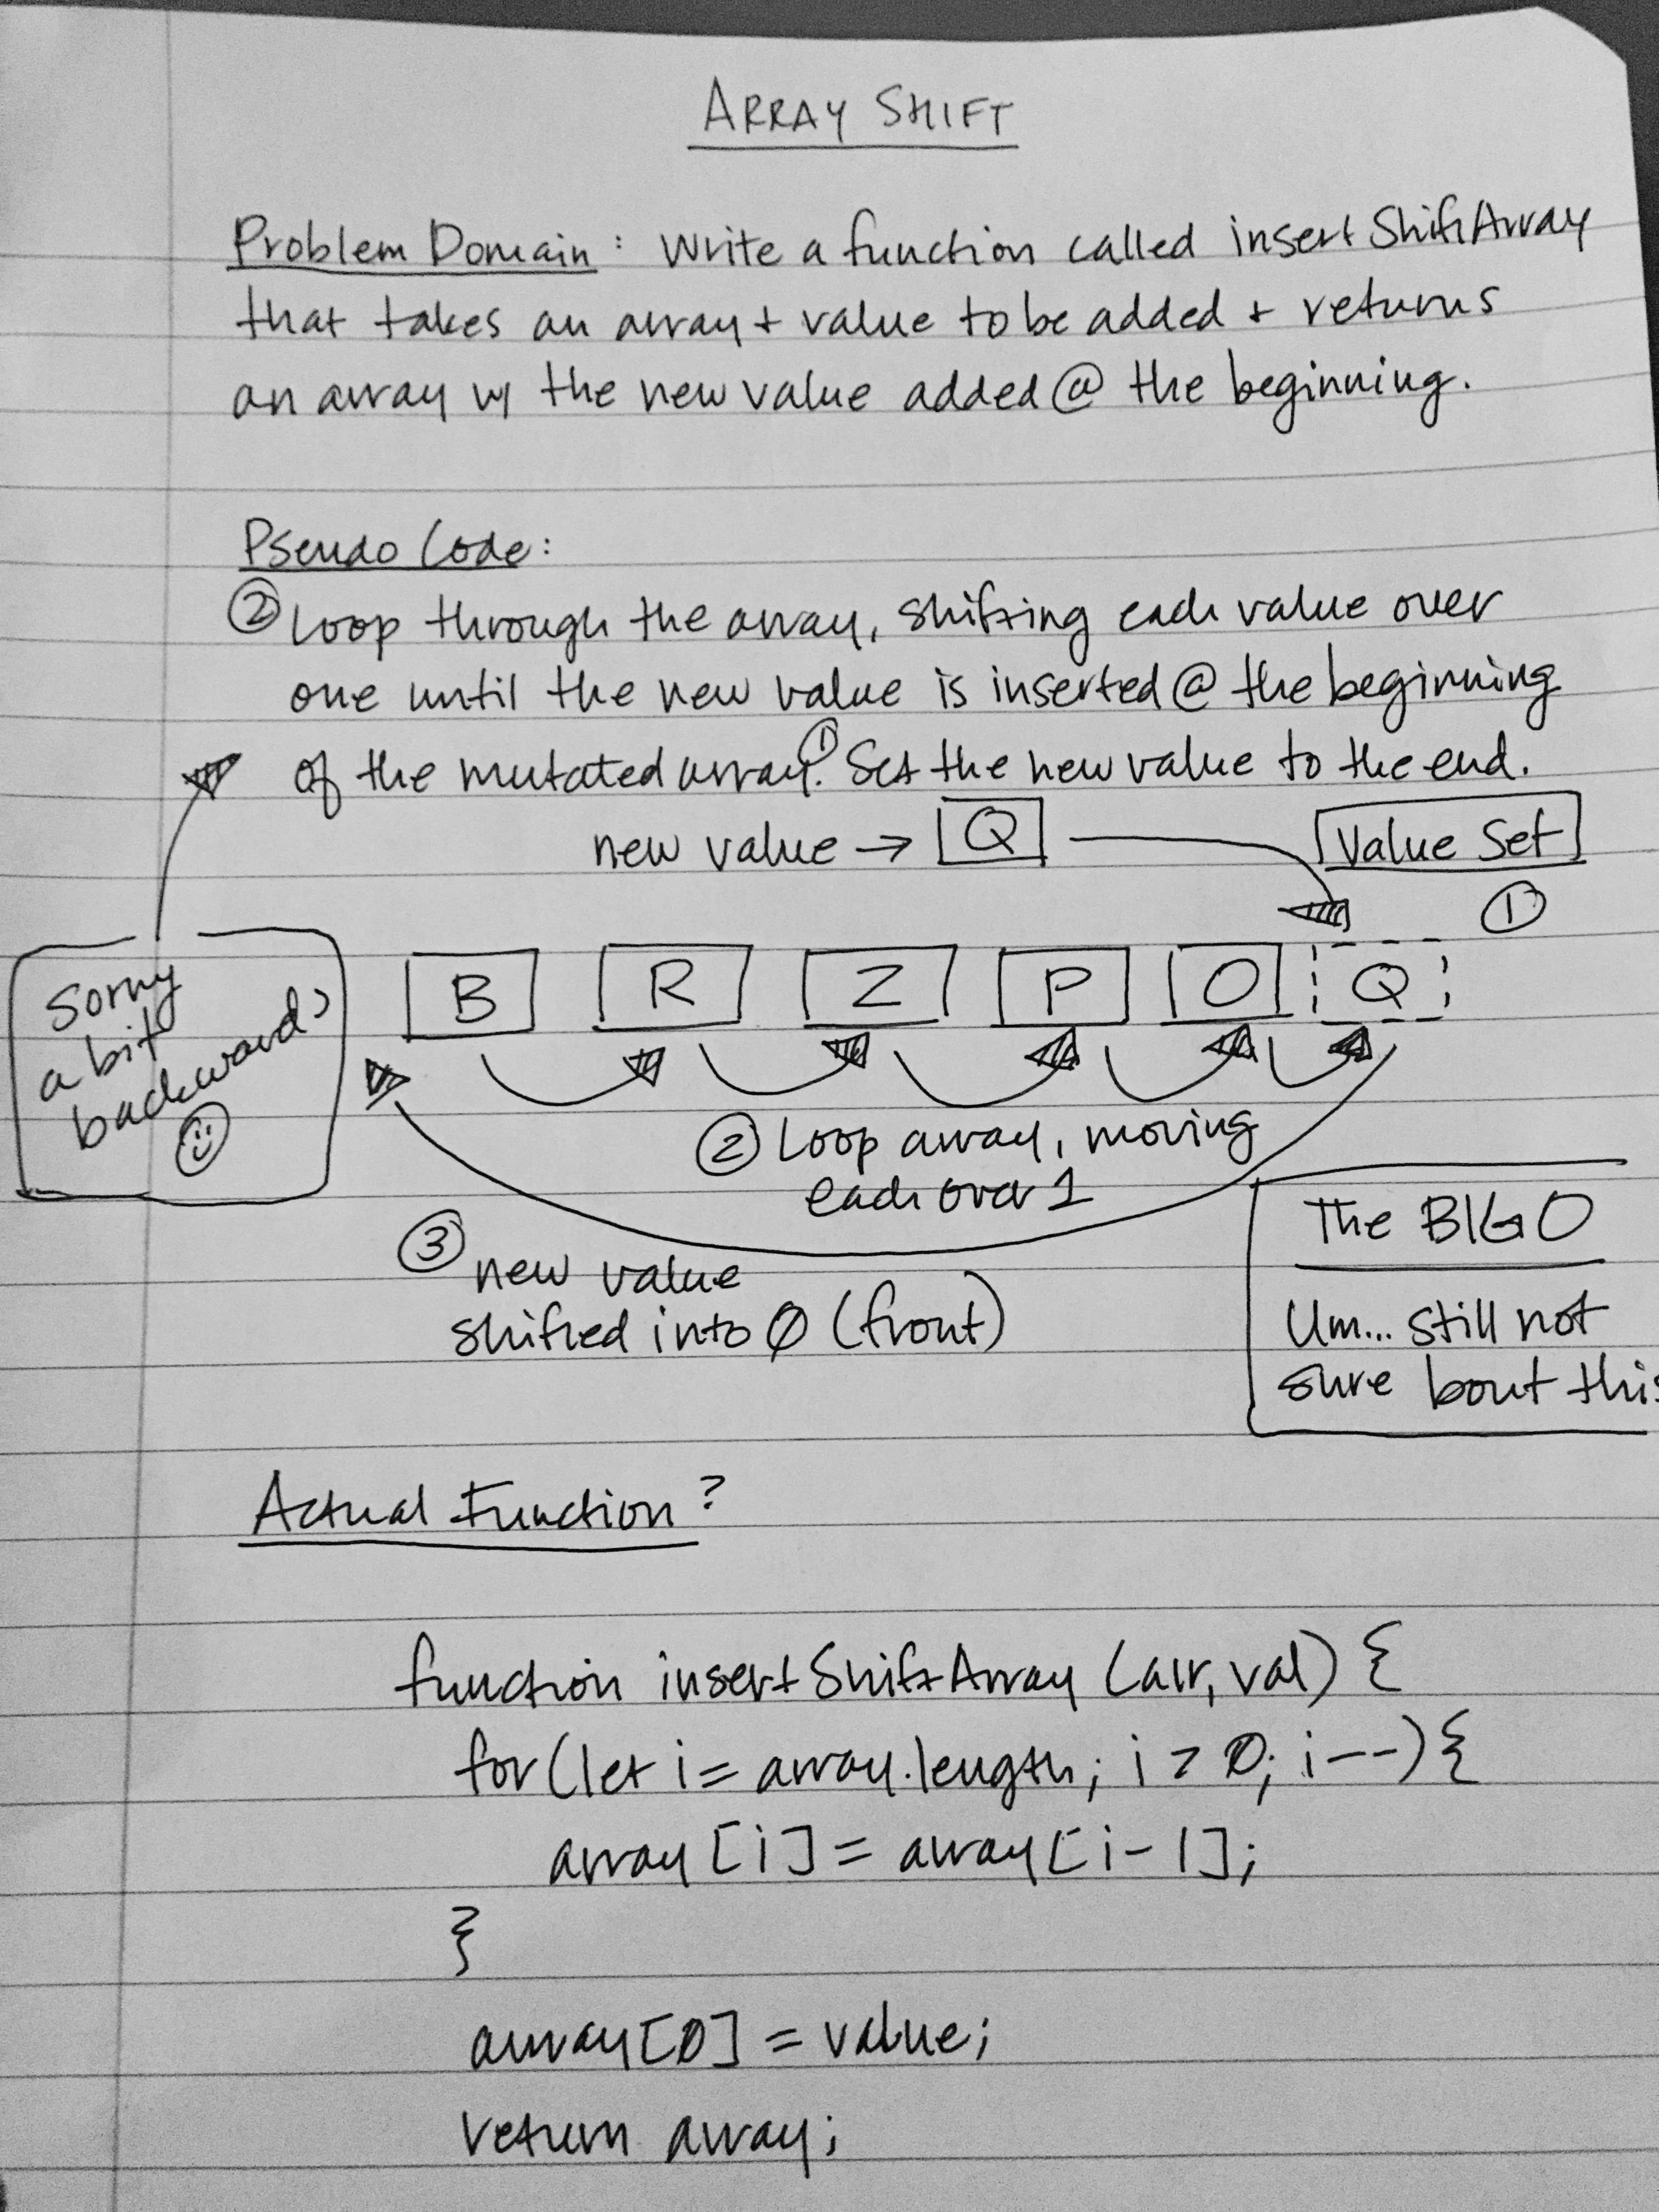 ARRAY SHIFT
Problem Domain: Write a function called insertShiftArray
that takes an array + value to be added + returns
an array w/ the new value added @ the beginning.
Pseudo Code:
② Loop through the array, shifting each value over
one until the new value is inserted @ the beginning
of the mutated array. ① Set the new value to the end.
new value → Q
Value Set
①
B R Z P O Q
Sorry
a bit
backwards
② Loop array, moving
each over 1
③ new value
shifted into 0 (front)
The BIG O
Um... still not
sure bout this
Actual Function?
function insertShiftArray (arr, val) {
for (let i = array.length; i > 0; i--) {
array[i] = array[i-1];
}
array[0] = value;
return array;